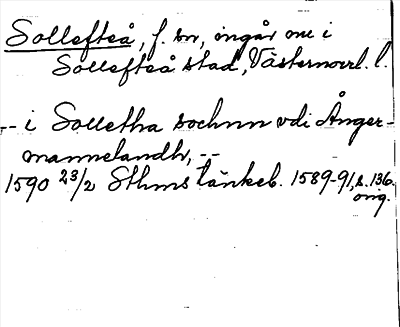 Sollefteå, f. sn, ingår nu i
Sollefteå stad, Västernorrl. l.
-- i Solletha sochnn vdi Ånger-
mannelandh, --
1590 23/2 Sthms tänkeb. 1589-91, s. 136.
orig.